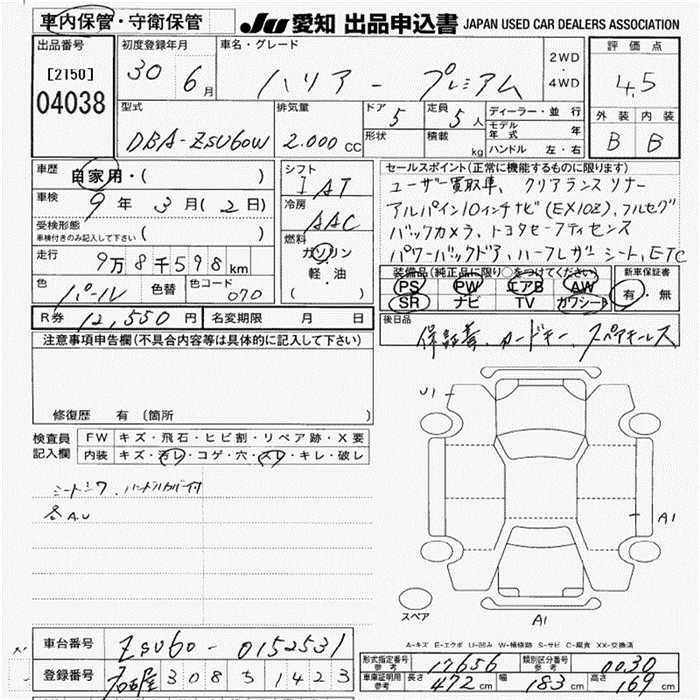 車内保管・守衛保管
JU 愛知 出品申込書 JAPAN USED CAR DEALERS ASSOCIATION
出品番号
[2150]
04038
初度登録年月
30 6月
車名・グレード
ハリアー プレミアム
2WD
・
4WD
評価点
4,5
外装 内装
B B
型式
DBA-ZSU60W
排気量
2.000 CC
ドア 5
形状
定員 5人
積載 kg
ディーラー・並行
モデル年式 年
ハンドル 左・右
車歴 自家用・( )
車検 9年 3月(2日)
受検形態
車検付きのみ記入して下さい ( )
走行 9万8千598km
色 パール 色替 色コード 070
シフト
IAT
冷房
AAC
燃料
ガソリン
軽・油
( )
セールスポイント(正常に機能するものに限ります)
ユーザー買取車、クリアランスソナー
アルパイン10インチナビ(EX10Z)、フルセグ
バックカメラ、トヨタセーフティセンス
パワーバックドア、ハーフレザーシート、ETC
装備品(純正品に限り○をつけてください)
PS PW エアB AW
SR ナビ TV カワシート
新車保証書
有・無
R券 12,550円 名変期限 月 日
後日品
保証書、カードキー、スペアキーレス
注意事項申告欄(不具合内容等は具体的に記入して下さい)
修復歴 有 〔箇所 〕
検査員
記入欄
FW キズ・飛石・ヒビ割・リペア跡・X要
内装 キズ・汚レ・コゲ・穴・スレ・キレ・破レ
シートシワ、ハンドルカバー付
各A.U
U1
A1
A1
スペア
A-キズ E-エクボ U-凹み W-補修跡 S-サビ C-腐食 XX-交換済
車台番号 ZSU60-0152531
登録番号 名古屋 308 ろ 1423
型式指定番号
参考
17656
類別区分番号
参考
0030
車庫証明用
参考
長さ 472cm 幅 183cm 高さ 169cm